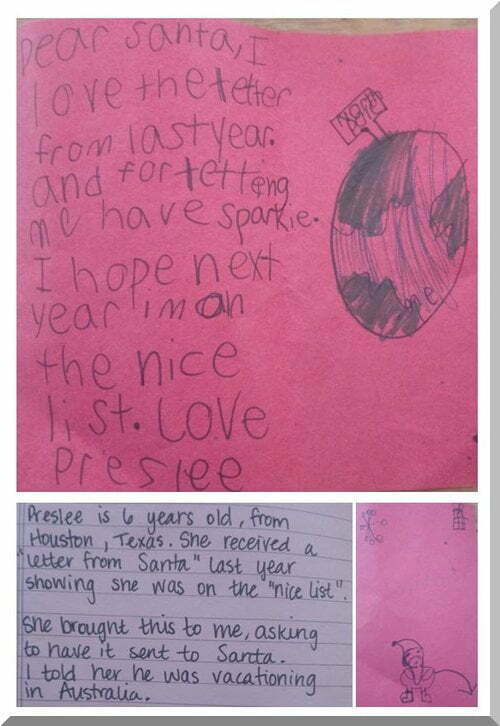 Dear Santa, I
love the letter
from last year.
and for letting
me have sparkie.
I hope next
year im on
the nice
list. Love
Preslee
me
Preslee is 6 years old, from
Houston, Texas. She received a
"letter from Santa" last year
showing she was on the "nice list".
She brought this to me, asking
to have it sent to Santa.
I told her he was vacationing
in Australia.